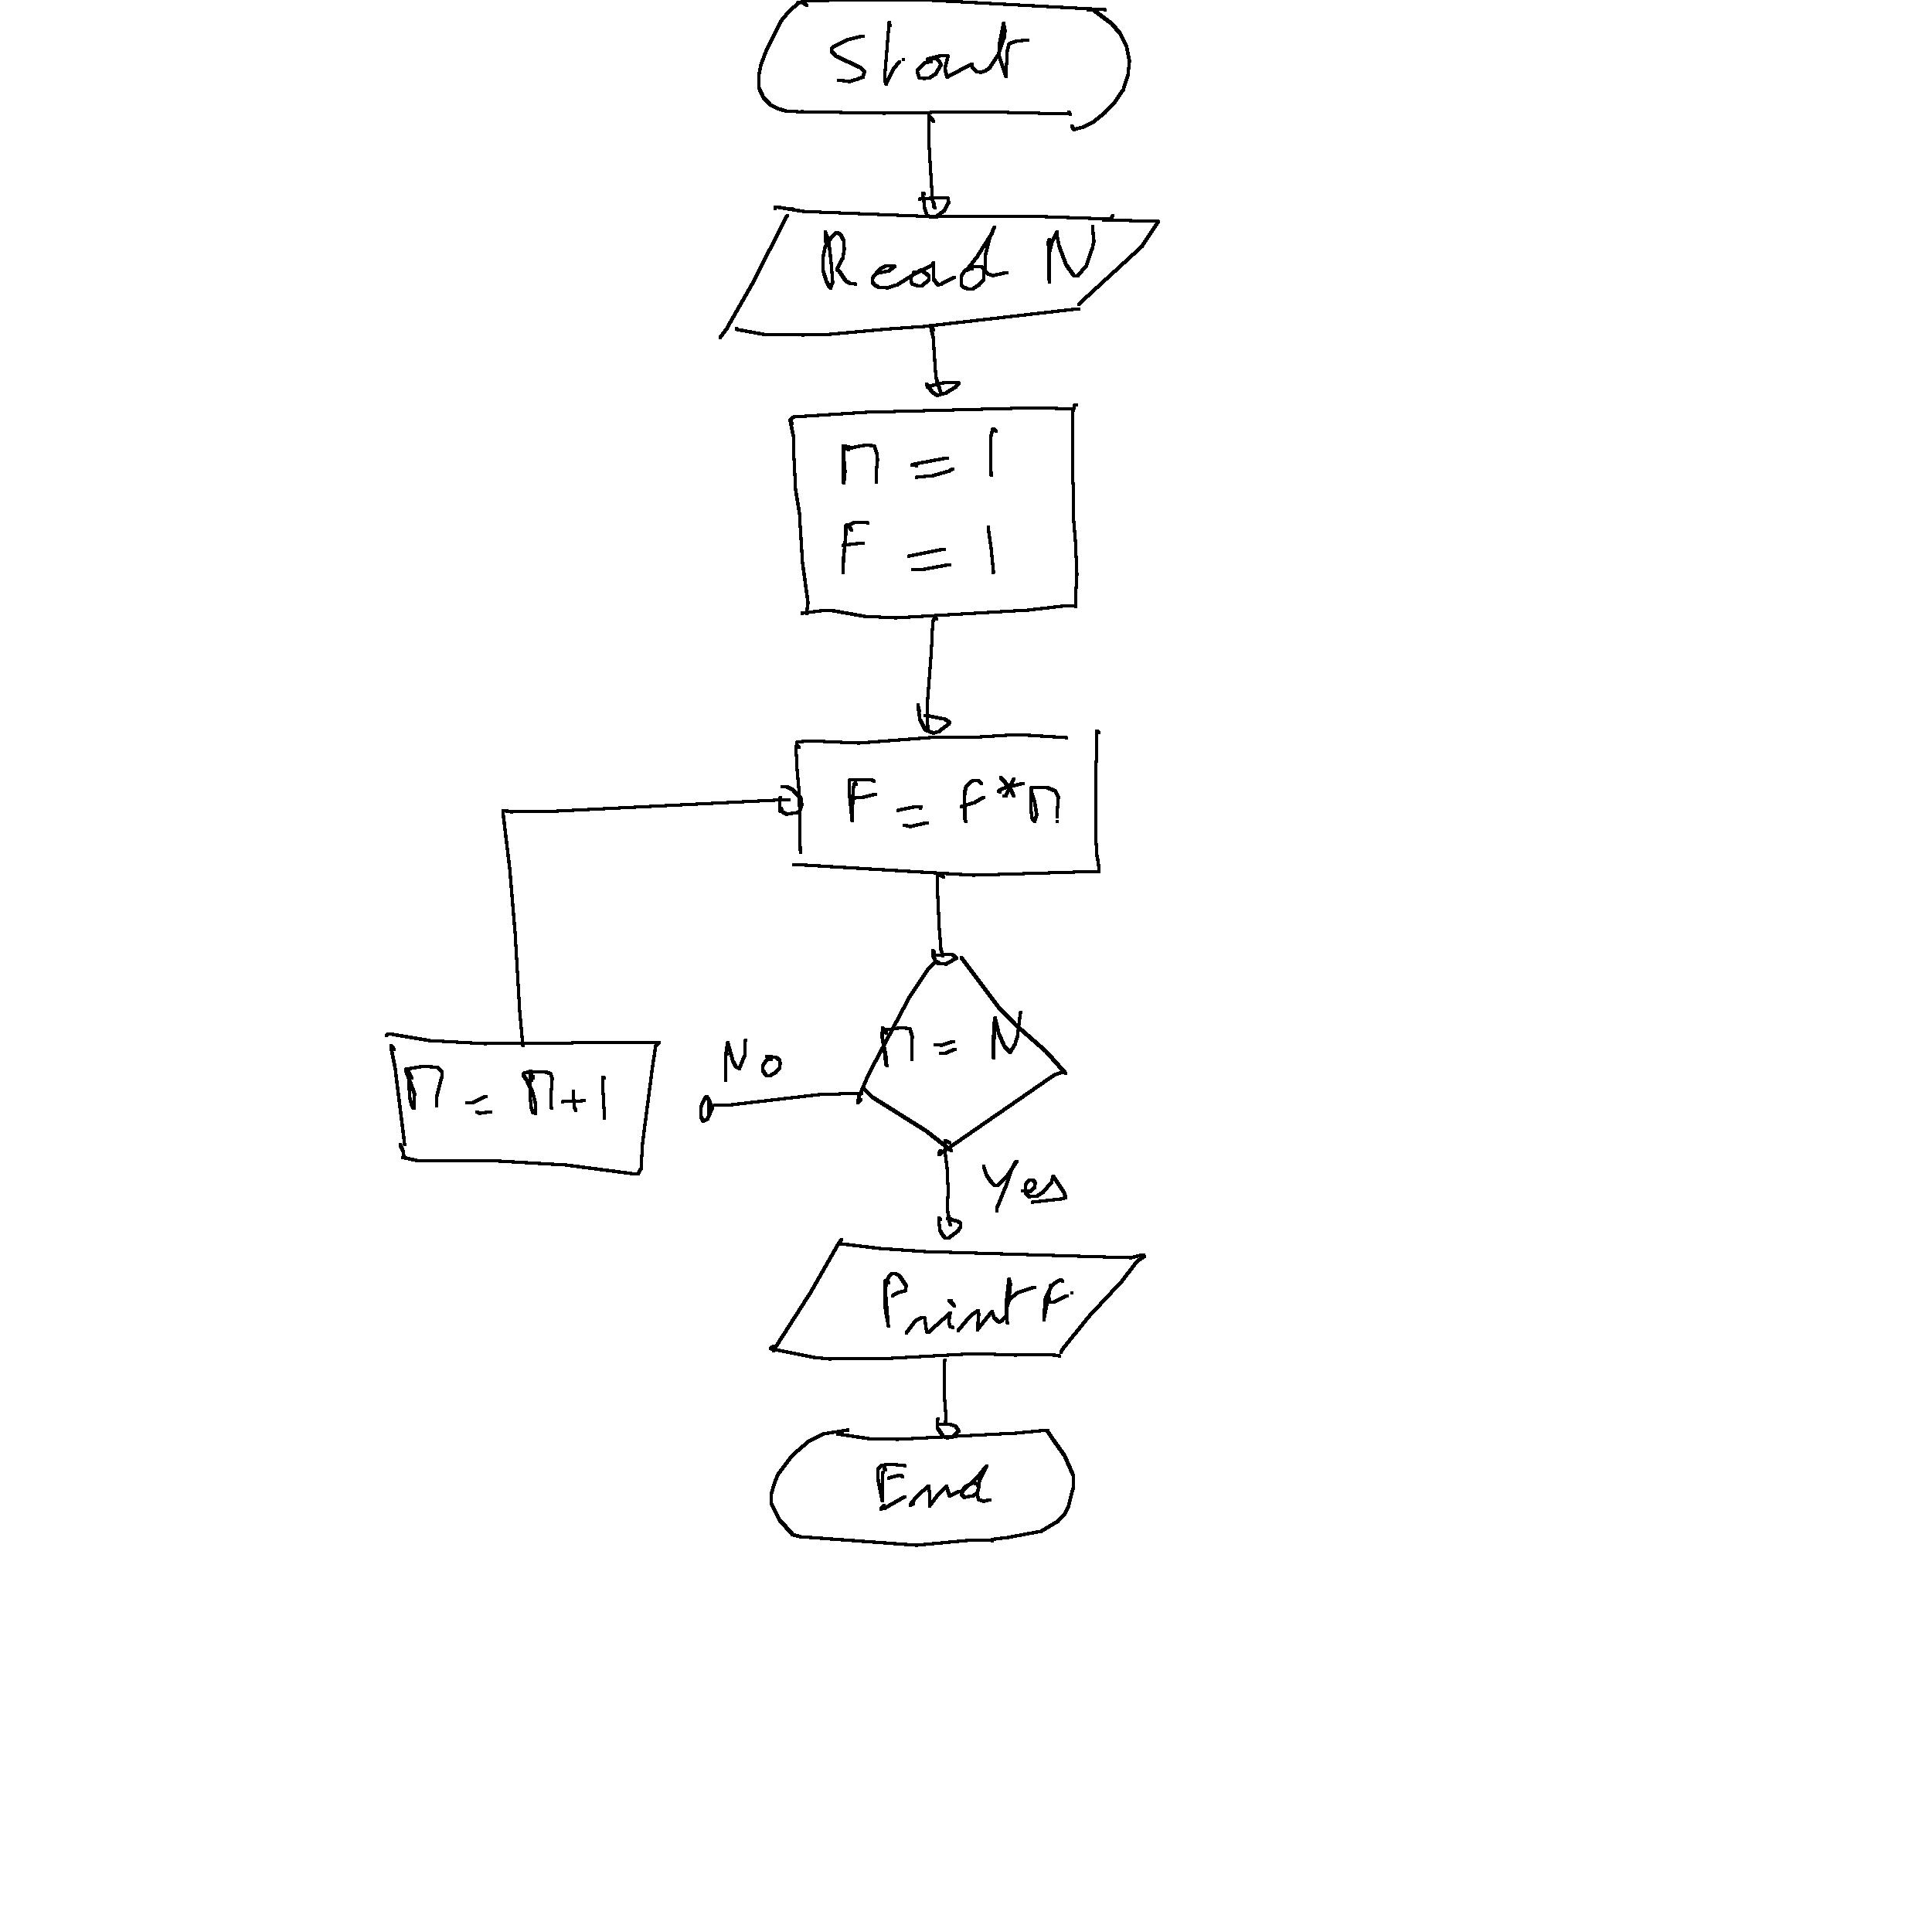 Start
Read N
n = 1
F = 1
F = f*n
n = N
No
n = n+1
Yes
Print F
End